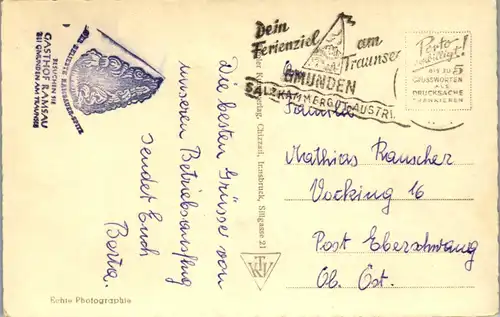 BESUCHEN SIE
GASTHOF RAMSAU
BEI GMUNDEN AM TRAUNSEE
Die besten Grüsse von
unseren Betriebsausflug
sendet Euch
Berta.
Echte Photographie
Chizzali, Innsbruck, Sillgasse 21
Dein
Ferienziel am
Traunsee
GMUNDEN
SALZKAMMERGUT-AUSTRIA
Porto
BIS ZU 5
GRUSSWORTEN
ALS
DRUCKSACHE
FRANKIEREN
Familie
Mathias Rauscher
Vocking 16
Post Eberschwang
Ob. Öst.